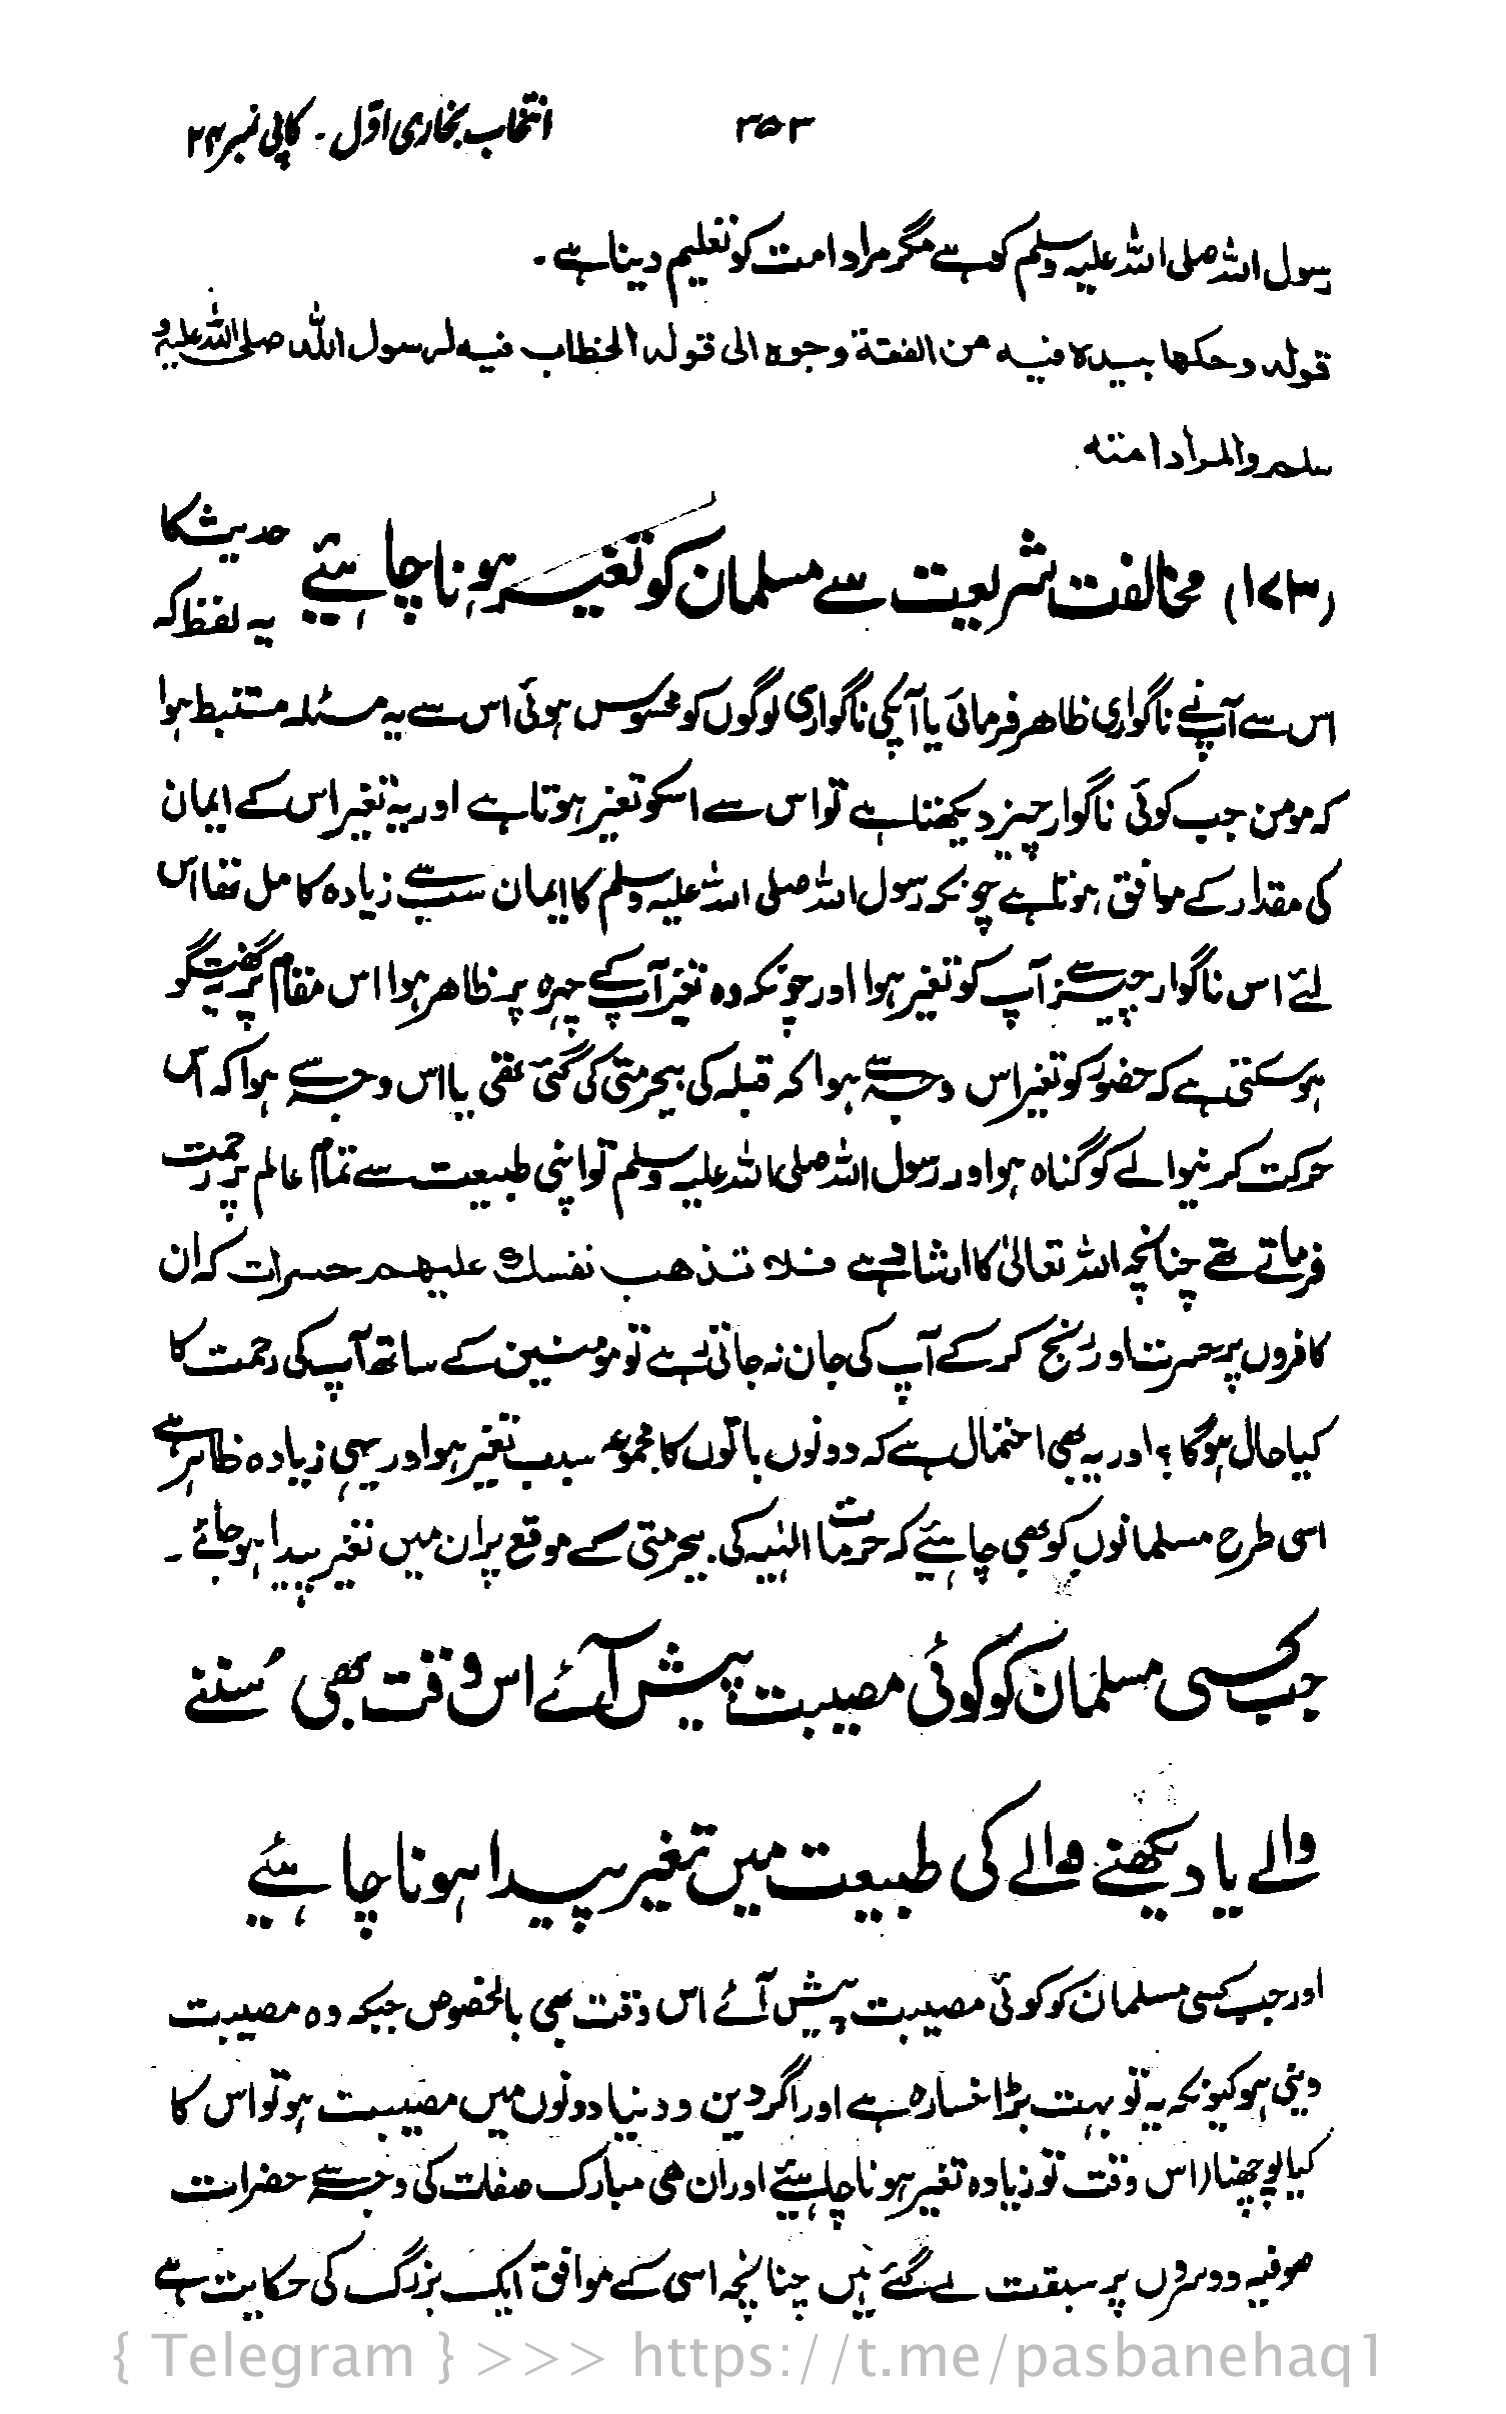 انتخاب بخاری اوّل - کاپی نمبر ۲۴ ۳۵۳
رسول اللہ صلی اللہ علیہ وسلم کو ہے مگر مراد امت کو تعلیم دینا ہے۔
قولہ وحکھا بیدہ فیہ من الفقة وجوہ الی قولہ الخطاب فیہ لرسول اللہ صلی اللہ علیہ و
سلم والمراد امتہ
(۱۷۳) مخالفت شریعت سے مسلمان کو تغیر ہونا چاہیئے حدیث کا
یہ لفظ کہ
اس سے آپ نے ناگواری ظاھر فرمائی یا آپکی ناگواری لوگوں کو محسوس ہوئی اس سے یہ مسئلہ مستنبط ہوا
کہ مومن جب کوئی ناگوار چیز دیکھتا ہے تو اس سے اسکو تغیر ہوتا ہے اور یہ تغیر اس کے ایمان
کی مقدار کے موافق ہوتا ہے چونکہ رسول اللہ صلی اللہ علیہ وسلم کا ایمان سب سے زیادہ کامل تھا اس
لئے اس ناگوار چیز سے آپ کو تغیر ہوا اور چونکہ وہ تغیر آپ کے چہرہ پر ظاھر ہوا اس مقام پر یہ گفتگو
ہو سکتی ہے کہ حضورؐ کو تغیر اس وجہ سے ہوا کہ قبلہ کی بیحرمتی کی گئی تھی یا اس وجہ سے ہوا کہ اس
حرکت کرنیوالے کو گناہ ہوا ور رسول اللہ صلی اللہ علیہ وسلم تو اپنی طبیعت سے تمام عالم پر رحمت
فرماتے تھے چنانچہ اللہ تعالیٰ کا ارشاد ہے فلا تذھب نفسك علیھم حسرات کہ ان
کافروں پر حسرت اور رنج کر کے آپ کی جان نہ جاتی رہے تو مومنین کے ساتھ آپ کی رحمت کا
کیا حال ہوگا؟ اور یہ بھی احتمال ہے کہ دونوں باتوں کا مجموعہ سبب تغیر ہوا اور یہی زیادہ ظاہر ہے
اسی طرح مسلمانوں کو بھی چاہئیے کہ حرمات الٰہیہ کی بیحرمتی کے موقع پر ان میں تغیر پیدا ہو جائے۔
جب کسی مسلمان کو کوئی مصیبت پیش آئے اس وقت بھی سُننے
والے یا دیکھنے والے کی طبیعت میں تغیر پیدا ہونا چاہئیے
اور جب کسی مسلمان کو کوئی مصیبت پیش آئے اس وقت بھی بالخصوص جبکہ وہ مصیبت
دینی ہو کیونکہ یہ تو بہت بڑا خسارہ ہے اور اگر دین و دنیا دونوں میں مصیبت ہو تو اس کا
کیا پوچھنا اس وقت تو زیادہ تغیر ہونا چاہیئے اور ان ھی مبارک صفات کی وجہ سے حضرات
صوفیہ دوسروں پر سبقت لے گئے ہیں چنانچہ اسی کے موافق ایک بزرگ کی حکایت ہے
{ Telegram } >>> https://t.me/pasbanehaq1